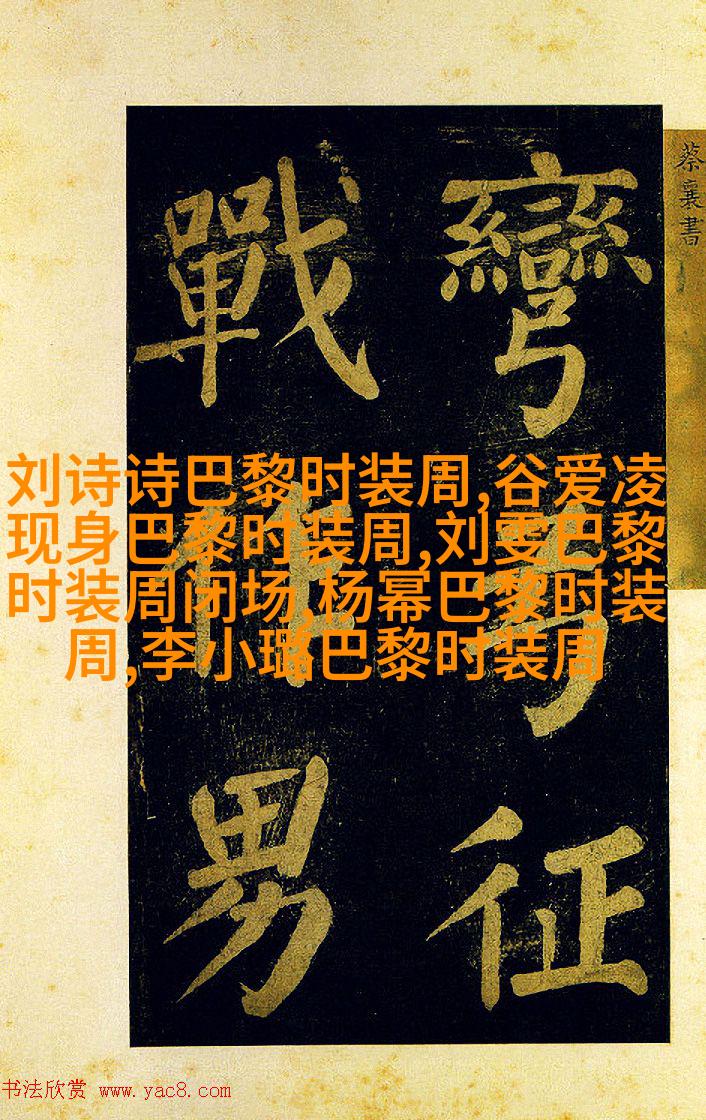 蔡襄書
彎弓征
戰作男
刘诗诗巴黎时装周,谷爱凌
现身巴黎时装周,刘雯巴黎
时装周闭场,杨幂巴黎时装
周,李小璐巴黎时装周
书法欣赏 www.yac8.com